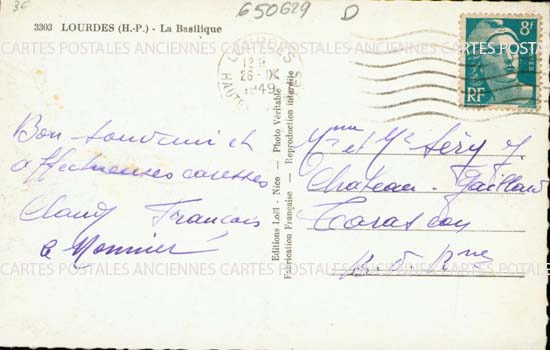 3303 LOURDES (H.-P.) - La Basilique
650629 D
LOURDES
12 H
26 - IX
1949
HAUTES
8F
POSTES
RF
Bon souvenir et
affectueuses caresses
Claudy François
Monnier
Editions Loël - Nice — Photo Véritable —
Fabrication Française — Reproduction interdite
Mme et Mr Séry J.
Chateau - Gaillard
Tarascon
B. d. Rne
CARTES POSTALES ANCIENNES CARTES POSTALES ANCIENNES CARTES POSTALES
CARTES POSTALES ANCIENNES CARTES POSTALES ANCIENNES CARTES POSTALES